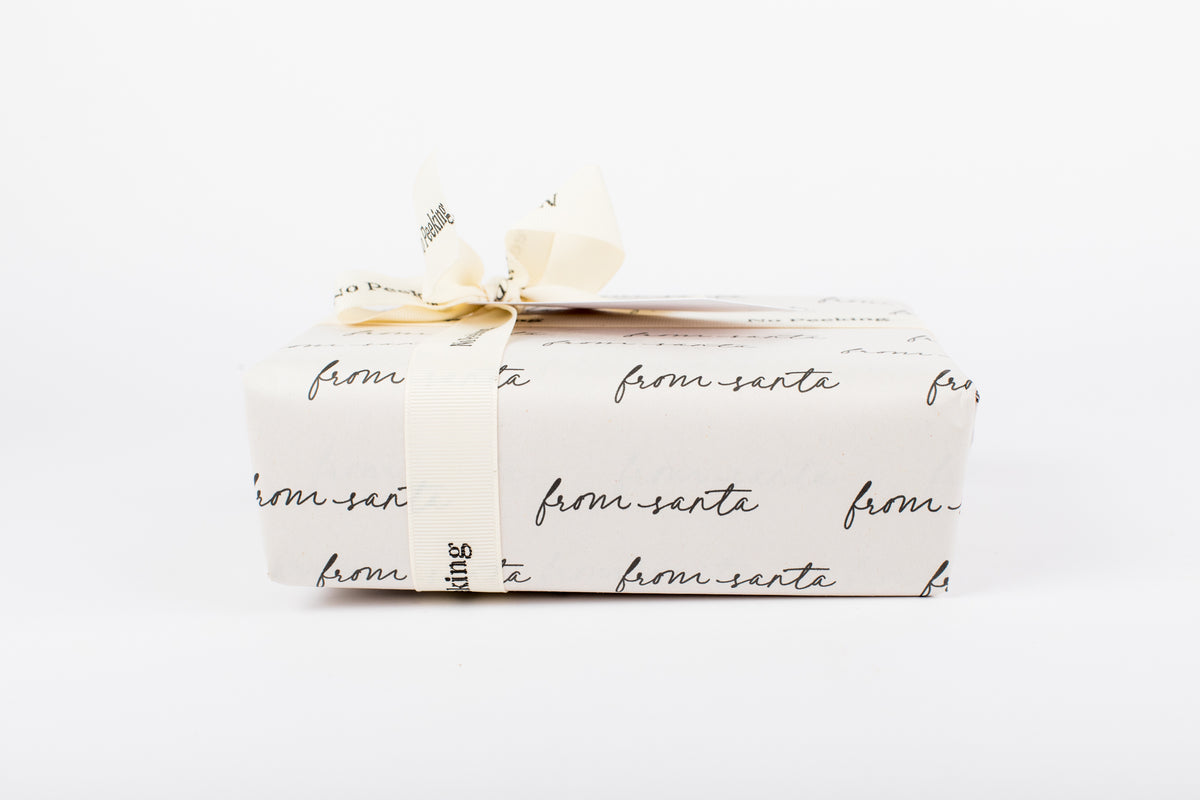 Peeking
No Peek
No Peeking
from santa
from santa
from ta
from santa
fro
from san
from santa
from
from ta
from santa
king